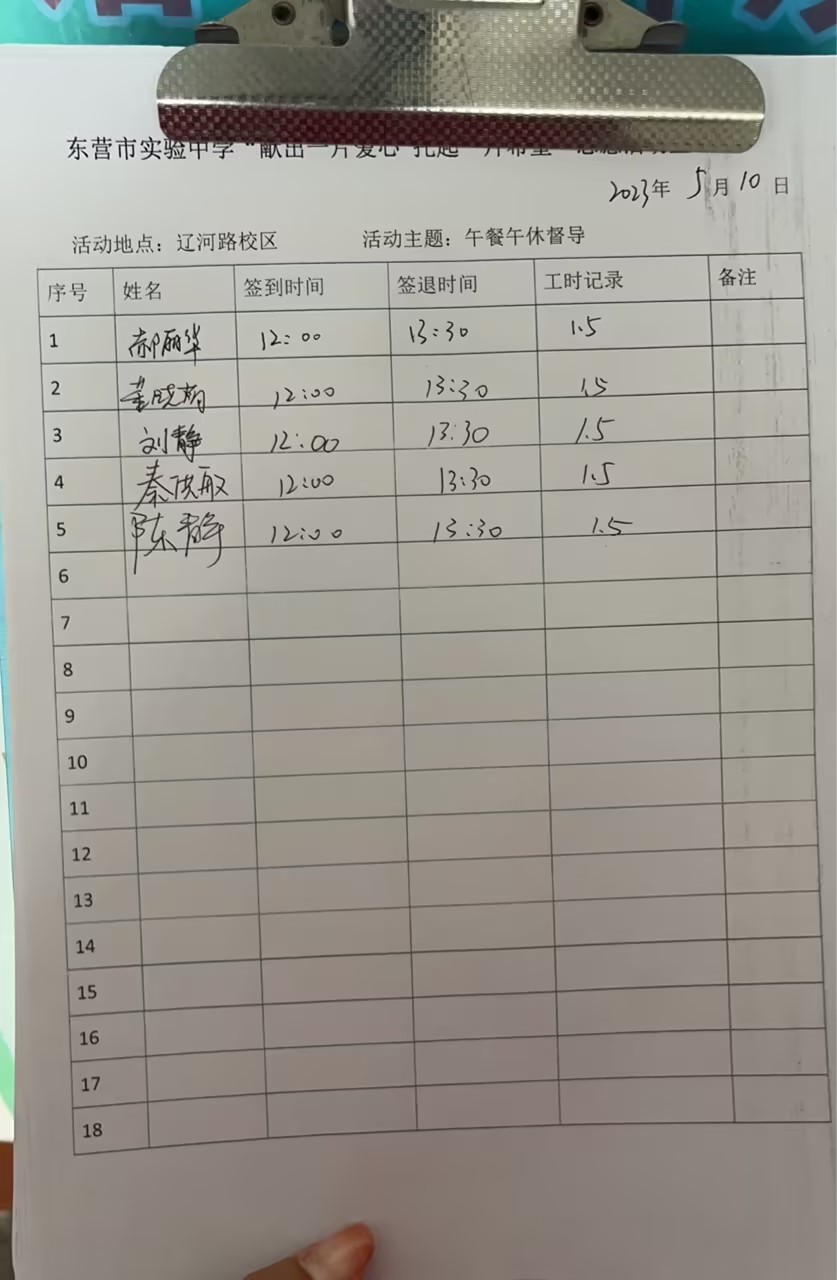 东营市实验中学“献出一片爱心 托起一片希望”志愿活动
2023年 5月10日
活动地点：辽河路校区 活动主题：午餐午休督导
序号 姓名 签到时间 签退时间 工时记录 备注
1 郝丽华 12:00 13:30 1.5
2 董晓 12:00 13:30 1.5
3 刘静 12:00 13:30 1.5
4 秦洪敏 12:00 13:30 1.5
5 陈静 12:00 13:30 1.5
6
7
8
9
10
11
12
13
14
15
16
17
18